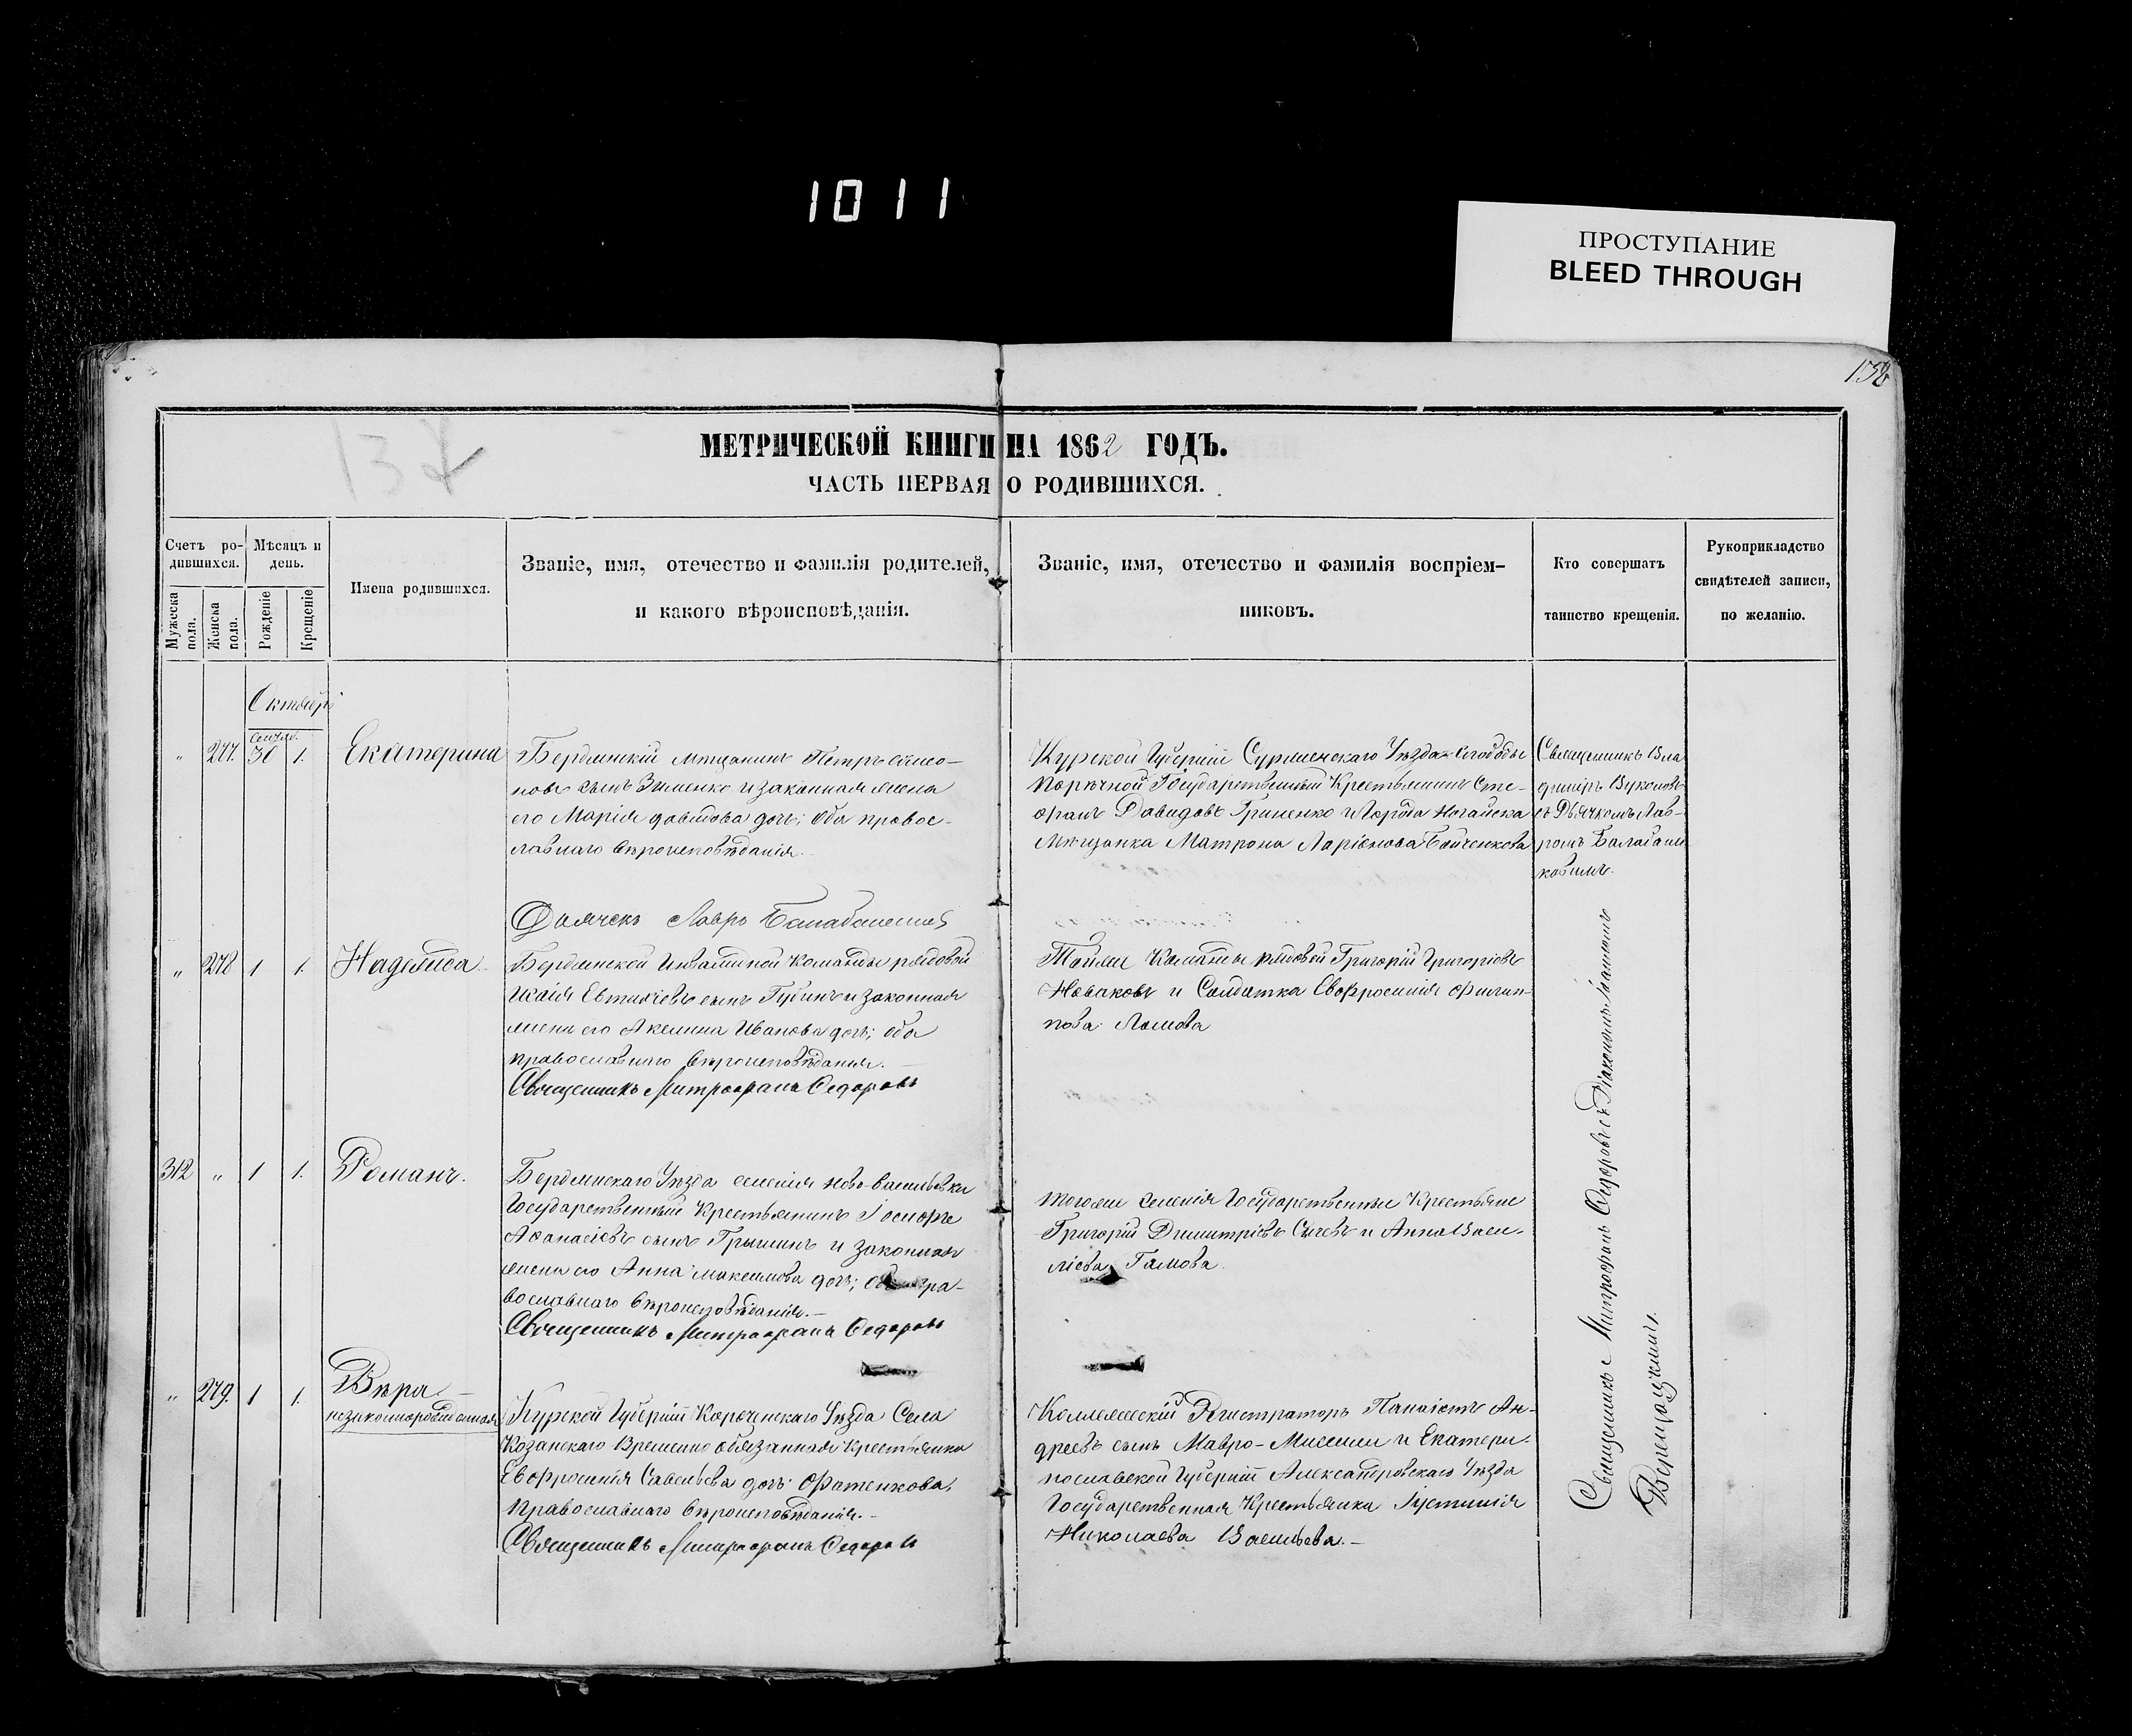 1011
ПРОСТУПАНИЕ
BLEED THROUGH
158
137
МЕТРИЧЕСКОЙ КНИГИ НА 1862 ГОДЪ.
ЧАСТЬ ПЕРВАЯ О РОДИВШИХСЯ.
Счетъ ро-
дившихся.
Мужеска пола.
Женска пола.
Мѣсяцъ и
день.
Рожденіе
Крещеніе
Имена родившихся.
Званіе, имя, отечество и фамилія родителей,
и какого вѣроисповѣданія.
Званіе, имя, отечество и фамилія воспріем-
никовъ.
Кто совершатъ
таинство крещенія.
Рукоприкладство
свидѣтелей записи,
по желанію.
Октябрь
Сентяб.
" 277. 30 1. Екатерина
Бердянскій мѣщанинъ Петръ Симо-
новъ сынъ Зименко и законная жена
его Марія Давидова дочь; оба правос-
лавнаго вѣроисповѣданія.
Дьячекъ Лавръ
Курской Губерніи Суджанскаго Уѣзда Слободы
Порѣчной Государственный Крестьянинъ Сте-
фанъ Давидовъ Гриненко и города Ногайска
Мѣщанка Матрона Ларіонова Бойченкова
Священникъ Вла
диміръ Вуколовъ
съ Дьячкомъ Лав-
ромъ Балабани
ковымъ.
" 278 1 1. Надежда
Бердянской Инвалидной Команды рядовой
Исаія Евтихіевъ сынъ Губинъ и законная
жена его Акелина Иванова дочь; оба
православнаго вѣроисповѣданія.
Священникъ Митрофанъ Федоровъ
Тойже Команды рядовой Григорій Григорьевъ
Новаковъ и Солдатка Евфросинія Филип-
пова Ломова
312 " 1 1. Романъ.
Бердянскаго Уѣзда селенія Ново-Васильевки
Государственный Крестьянинъ Іосифъ
Афанасіевъ сынъ и законная
жена его Анна Максимова дочь; оба пра-
вославнаго вѣроисповѣданія.
Священникъ Митрофанъ Федоровъ
тогоже селенія Государственные Крестьяне
Григорій Димитріевъ Сычевъ и Анна Васи-
ліева Гамова.
" 279. 1 1. Вѣра
незаконнорожденная
Курской Губерніи Корочанскаго Уѣзда Села
Казанскаго Временно обязанная крестьянка
Евфросинія Савельева дочь Фатенкова,
Православнаго вѣроисповѣданія.
Священникъ Митрофанъ Федоровъ
Коллежскій Регистраторъ Панаіотъ Ан-
дреевъ сынъ Мавро- и Екатери-
нославской Губерніи Александровскаго Уѣзда
Государственная Крестьянка Іустинія
Николаева Васильева.
Священникъ Митрофанъ Федоровъ съ Діакономъ
Верещацкимъ.